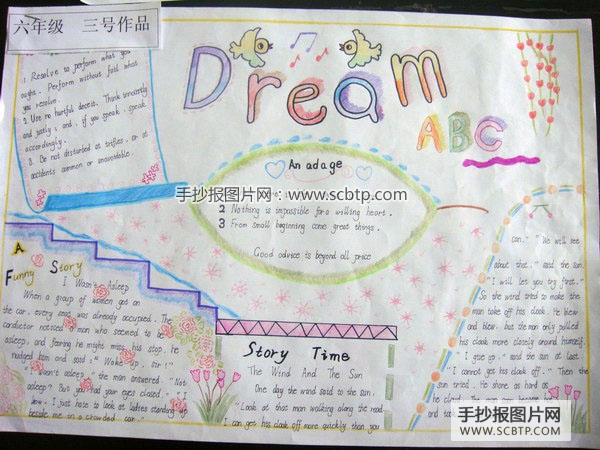 六年级 三号作品
Dream
ABC
1. Resolve to perform what you
ought. Perform without fail what
you resolve.
2. Use no hurtful deceit. Think innocently
and justly, and, if you speak, speak
accordingly.
3. Be not disturbed at trifles, or at
accidents common or unavoidable.
An adage
手抄报图片网:www.scbtp.com
2 Nothing is impossible for a willing heart.
3 From small beginning come great things.
Good advice is beyond all price
A
Funny Story
I Wasn't Asleep
When a group of women got on
the car, every seat was already occupied. The
conductor noticed a man who seemed to be
asleep, and fearing he might miss his stop, he
nudged him and said: "Wake up, sir!"
"I wasn't asleep," the man answered. "Not
asleep? But you had your eyes closed." "I
know. I just hate to look at ladies standing up
beside me in a crowded car."
Story Time
The Wind And The Sun
One day the wind said to the sun,
"Look at that man walking along the road
I can get his cloak off more quickly than you
can." "We will see
about that," said the sun.
"I will let you try first."
So the wind tried to make the
man take off his cloak. He blew
and blew, but the man only pulled
his cloak more closely around himself.
"I give up," said the sun at last
"I cannot get his cloak off." Then the
sun tried. He shone as hard as
he could. The man soon became hot
and took
手抄报图片网
WWW.SCBTP.COM